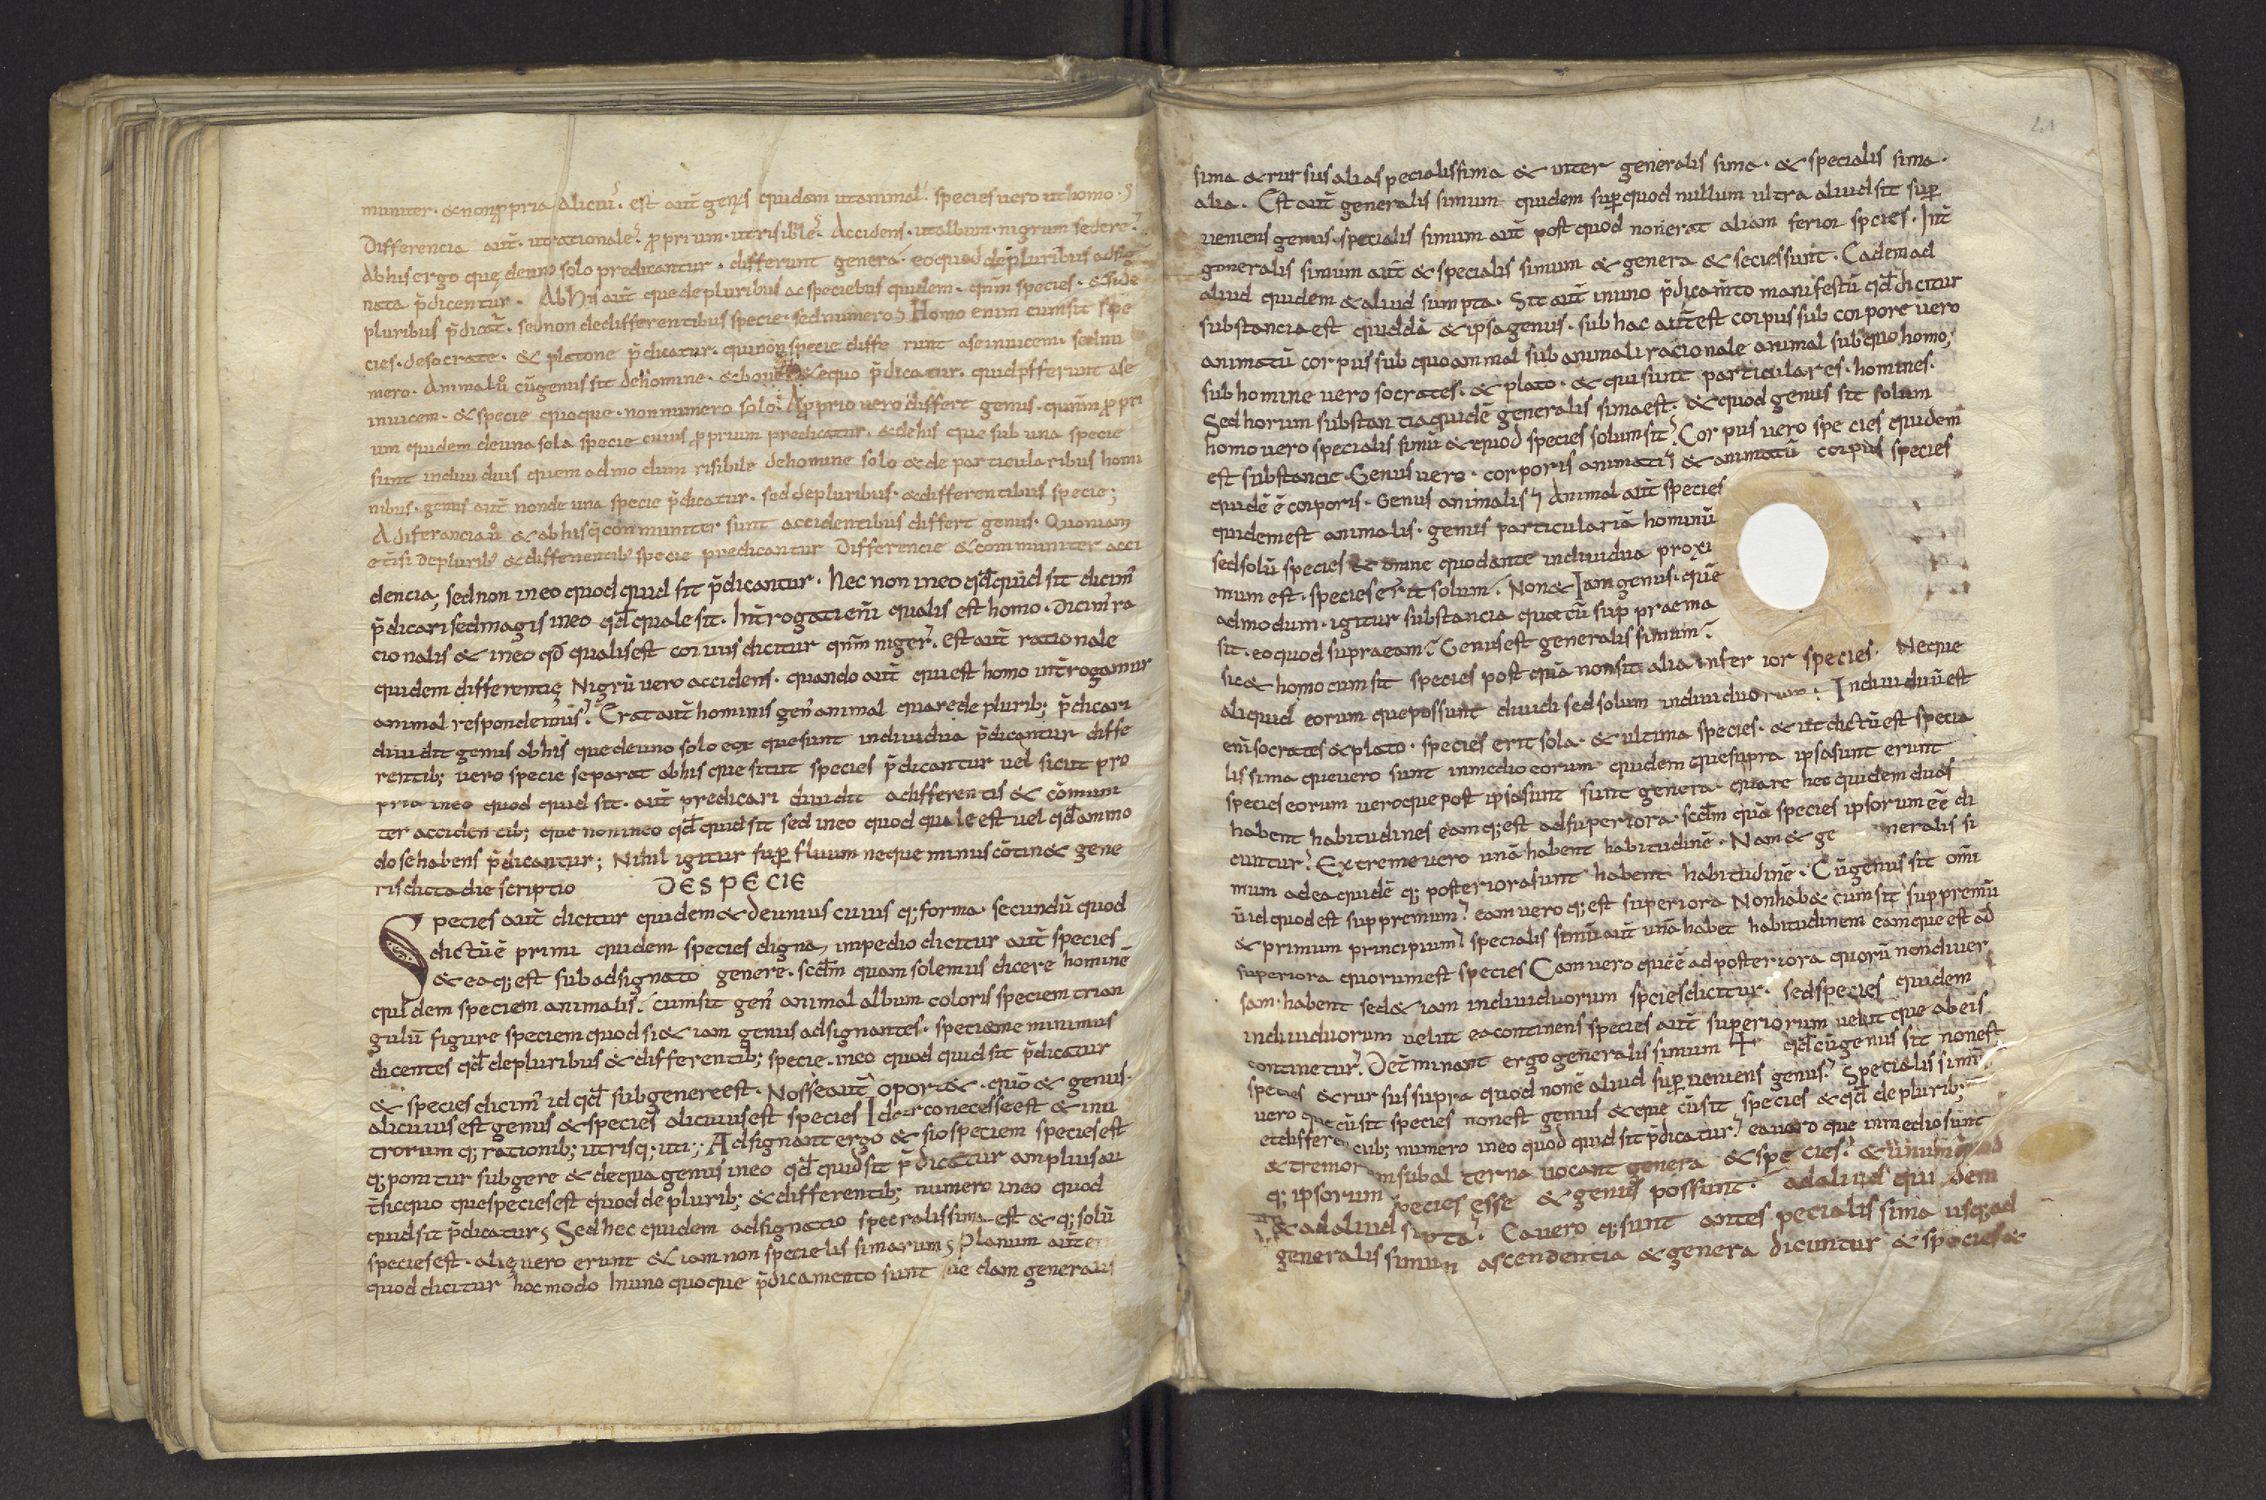 muniter · & non ꝓpria alicui᾽ · est aut̄ genus quidam ut animal · species vero ut homo ·
Differencia aut̄ · ut rationale · ꝓprium · ut risibile · Accidens · ut album · nigrum sedere ·
Ab his ergo quę de uno solo predicantur · differunt genera · eo quod de pluribus adsig
nata p̄dicentur · Ab his aut̄ que de pluribus ac speciebus quidem · qm̄ species · & si de
pluribus p̄dicat᾽ · sed non de differentibus specie · sed numero Homo enim cum sit spe
cies · de socrate · & platone p̄dicatur · qui non specie diffe runt ase inuicem · sed nu
mero · Animal ů cū genus sit de homine · & boue & equo p̄dicatur · qui differunt ase
inuicem · & specie quoque · non numero solo · A ꝓprio vero differt genus · qm̄ ꝓpri
um quidem de una sola specie cuius ꝓprium predicatur · & de his que sub una specie
sunt indiui duis quem ad mo dum risibile de homine solo & de particularibus homi
nibus · genus aut̄ non de una specie p̄dicatur · sed de pluribus · & differentibus specie ;
A diferancia ů & ab his q̄ communiter sunt accidentibus differt genus · Quoniam
etsi de plurib᾽ & differentib᾽ specie predicantur Differencie & communiter acci
dencia ; sed non in eo quod quid sit p̄dicantur · Nec non in eo qd̄ quid sit dicim᾽
p̄dicari sed magis in eo qd̄ quale sit · Int̄rogati eni᾽ qualis est homo · Dicim᾽ ra
cionalis & in eo qd̄ qualis est coruus dicitur qm̄ niger · est aut̄ rationale
quidem differentię Nigrū vero accidens · quando aut̄ qui est homo int̄rogamur
animal respondemus · Erat aut̄ hominis gen᾽ animal quare de plurib; p̄dicari
diuidit genus ab his que de uno solo eor que sunt indiuidua p̄dicantur diffe
rentib; vero specie separat ab his que situt species p̄dicantur vel sicut pro
pria in eo quod quid sit · aut̄ predicari diuidit a differentis & cōmuni
ter acciden cib; que non in eo qd̄ quid sit sed in eo quod quale est vel qd̄ ammo
do se habens p̄dicantur ; Nihil igitur suꝑ fluum neque minus cōtin& gene
ris dicta die scriptio DE SPECIE
Species aut̄ dicitur quidem & de unius cuius q; forma · secundū quod
dictū ē primi quidem species digna impedio dicitur aut̄ species
& ea q; est sub adsignato genere · scdm̄ quam solemus dicere hominē
qui dem speciem animalis · cum sit gen᾽ animal album coloris speciem trian
gulū figure speciem quod si & iam genus adsignantes · speciæ me minimus
dicentes qd̄ de pluribus & differentib; specie · in eo quod quid sit p̄dicatur
& species dicim᾽ id qd̄ sub genere est · Nosse aut̄ oport& · quō & genus ·
alicuius est genus & species alicuius est species Idcirco necesse est & inu
trorum q; rationib; utrisq; uti ; Adsignant ergo & sio speciem species est
q; ponitur sub gere & de qua genus in eo qd̄ quid sit p̄dicatur amplius au
t̄ sic quo que species est quod de plurib; & differentib; numero in eo quod
quid sit p̄dicatur Sed hec quidem adsignatio specialissima est & q; solū
species est · alię vero erunt & iam non specielis simarum Planum aut̄e
quod dicitur hoc modo In uno quoque p̄dicamento sunt dam generalis
21
sima & rursus alia specialissima & inter generalis sima · & specialis sima ·
alia · Est aut̄ generalis simum quidem suꝑ quod nullum ultra aliud sit suꝑ
veniens genus · specialis simum aut̄ post quod non erat aliam ferior spcies · Int̄
generalis simum aut̄ & specialis simum & genera & secies sunt · Eadem ad
aliud quidem & aliud sumpta · Sit aut̄ in uno p̄dicam̄to manifestū qd̄ dicitur
substancia est quiddā & ipsa genus · sub hac aut̄ est corpus sub corpore vero
animatū corpus sub quo animal sub animali racionale animal sub quo homo ;
sub homine vero socrates · & plato · & qui sunt particulares · homines ·
Sed horum substan tia quidē generalis sima est · & quod genus sit solum
homo vero specialis simū & quod species solum sit · Cor pus vero spe cies quidem
est substancie · Genus vero · corporis animati & animatū corpus species
quidē ē corporis · Genus animalis Animal aut̄ species
quidem est animalis · genus particulariā hominū
sed solū species & omne quod ante indiuidua proxi
mum est · species erit solum · Non & Iam genus · quē
admodum · igitur substancia qua cū suꝑ praema
sit · eo quod supra eam Genus est generalis simum ·
sic & homo cum sit species post quā non sit alia infer ior species · Neque
aliquid eorum que possunt diuidi sed solum indiuiduorum · Indiuiduū est
eni᾽ socrates & plato · species erit sola · & ultima species · & ut dictū est specia
lis sima que vero sunt in medio eorum quidem que supra ipsa sunt erunt
species eorum vero que post ipsa sunt sunt genera · quare hec quidem duas
habent habitudines eam q; est ad superiora · scdm̄ quā species ipsorum ēē di
cuntur · Extreme vero unā habent habitudinē · Nam & ge neralis si
mum ad ea quidē q; posteriora sunt habent habitudinē · Cū genus sit omi᾽
ū id quod est suppremum eam vero q; est superiora Non hab& cum sit suppremū
& primum principium specialis simū aut̄ unā habet habitudinem eam que est ad
superiora quorum est species Eam vero que ē ad posteriora quorū non diuer
sam · habent sed & iam indiuiduorum spcies dicitur · sed species quidem
indiuiduorum velut ea continens species aut̄ superiorum velut que ab eis
continetur · Det̄minant ergo generalis simum + qd̄ cū genus sit non est
species & rursus supra quod non ē aliud suꝑ veniens genus · Specialis simū
vero que cū sit species non est genus & que cū sit species & qd̄ de plurib;
et differen cib; numero in eo quod quid sit p̄dicatur ea vero que in medio sunt
& tremor am subal terna vocant genera & species · & unum quod
q; ipsorum species esse & genus possunt · ad aliud qui dem
& ad aliud sūpta · Ea vero q; sunt antes pecialis sima usq; ad
generalis simum ascendentia & genera dicuntur & species &